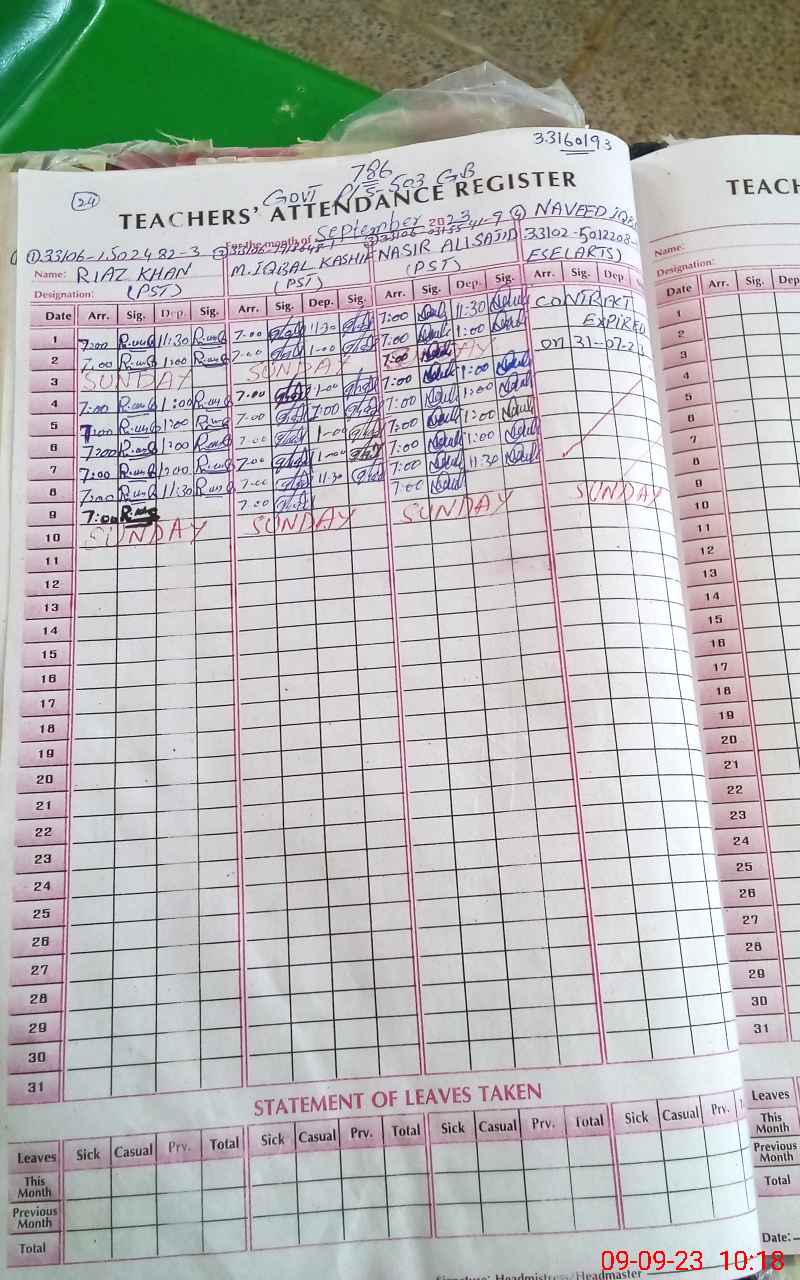 33160193
786
24
GOVT P/S 503 GB
TEACHERS' ATTENDANCE REGISTER
For the month of September 2023
① 33106-1502482-3
Name: RIAZ KHAN
(PST)
Designation:
M.IQBAL KASHIF
(PST)
NASIR ALI SAJID
(PST)
④ NAVEED IQB
33102-5012208-
ESE(ARTS)
Date Arr. Sig. Dep. Sig. Arr. Sig. Dep. Sig. Arr. Sig. Dep. Sig. Arr. Sig. Dep.
CONTRACT
EXPIRED
on 31-07-2
1 7:00 11:30 7-00 11-30 7:00 11:30
2 7:00 1:00 7-00 1-00 7:00 1:00
3 SUNDAY SUNDAY
4 7:00 1:00 7-00 1-00 7:00 1:00
5 7:00 1:00 7-00 7:00 7:00 1:00
6 7:00 1:00 7-00 1-00 7:00 1:00
7 7:00 1:00 7-00 1-00 7:00 1:00
8 7:00 11:30 7-00 11-30 7:00 11:30
9 7:00 7-00 7:00
10 SUNDAY SUNDAY SUNDAY SUNDAY
11
12
13
14
15
16
17
18
19
20
21
22
23
24
25
26
27
28
29
30
31
STATEMENT OF LEAVES TAKEN
Leaves Sick Casual Prv. Total Sick Casual Prv. Total Sick Casual Prv. Total Sick Casual Prv.
This Month
Previous Month
Total
Signature: Headmistress/Headmaster
TEACH
Name:
Designation:
Date Arr. Sig. Dep
1
2
3
4
5
6
7
8
9
10
11
12
13
14
15
16
17
18
19
20
21
22
23
24
25
26
27
28
29
30
31
Leaves
This Month
Previous Month
Total
Date:
09-09-23 10:18